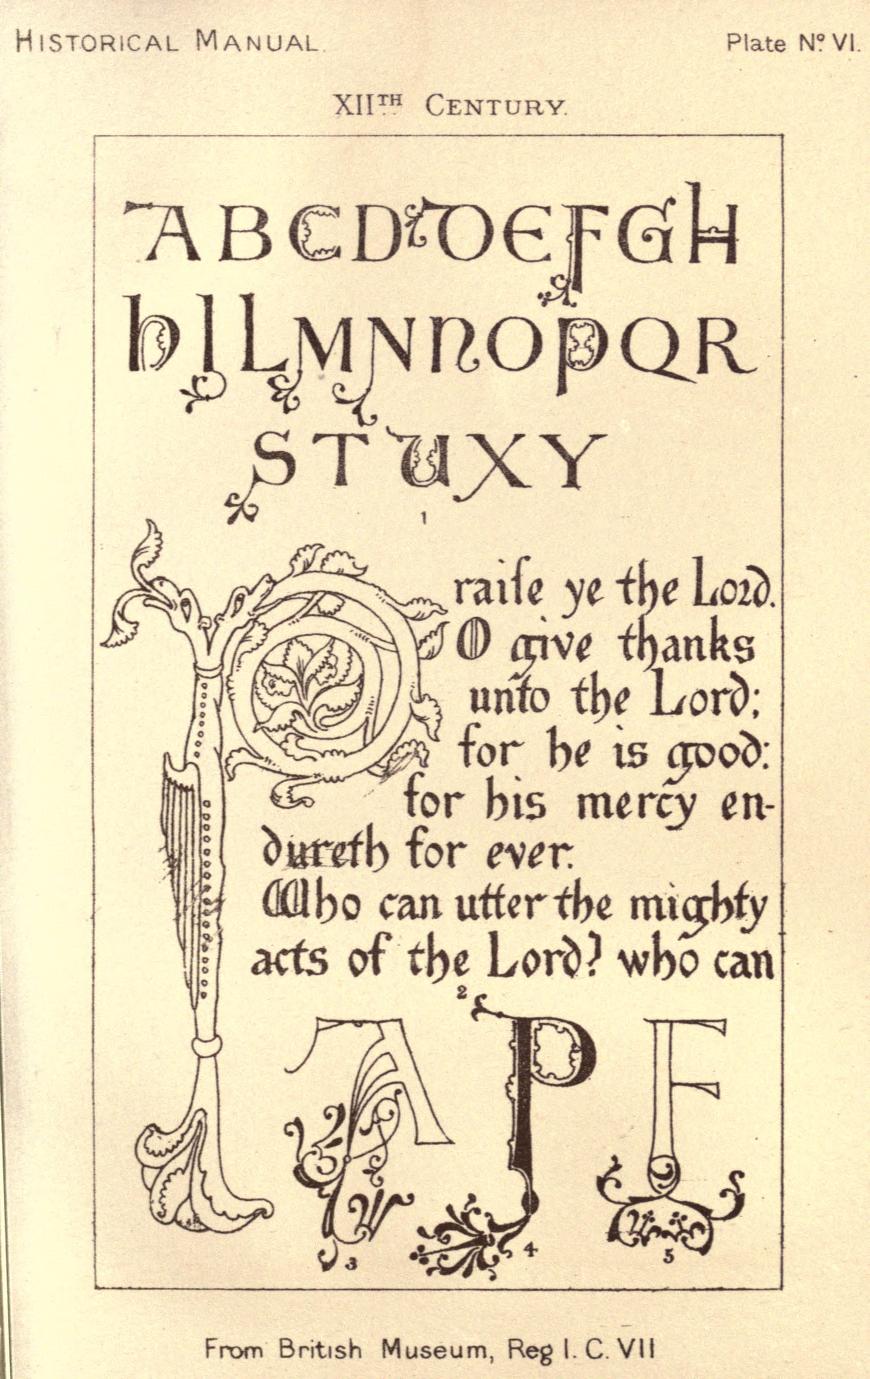 HISTORICAL MANUAL.
Plate No. VI.
XIITH CENTURY.
ABCDDEFGH
hILMNnOPQR
STUXY
1
Praiſe ye the Lord.
O give thanks
unto the Lord;
for he is good:
for his mercy en-
dureth for ever.
Who can utter the mighty
acts of the Lord? who can
2
A P F
3 4 5
From British Museum, Reg I. C. VII